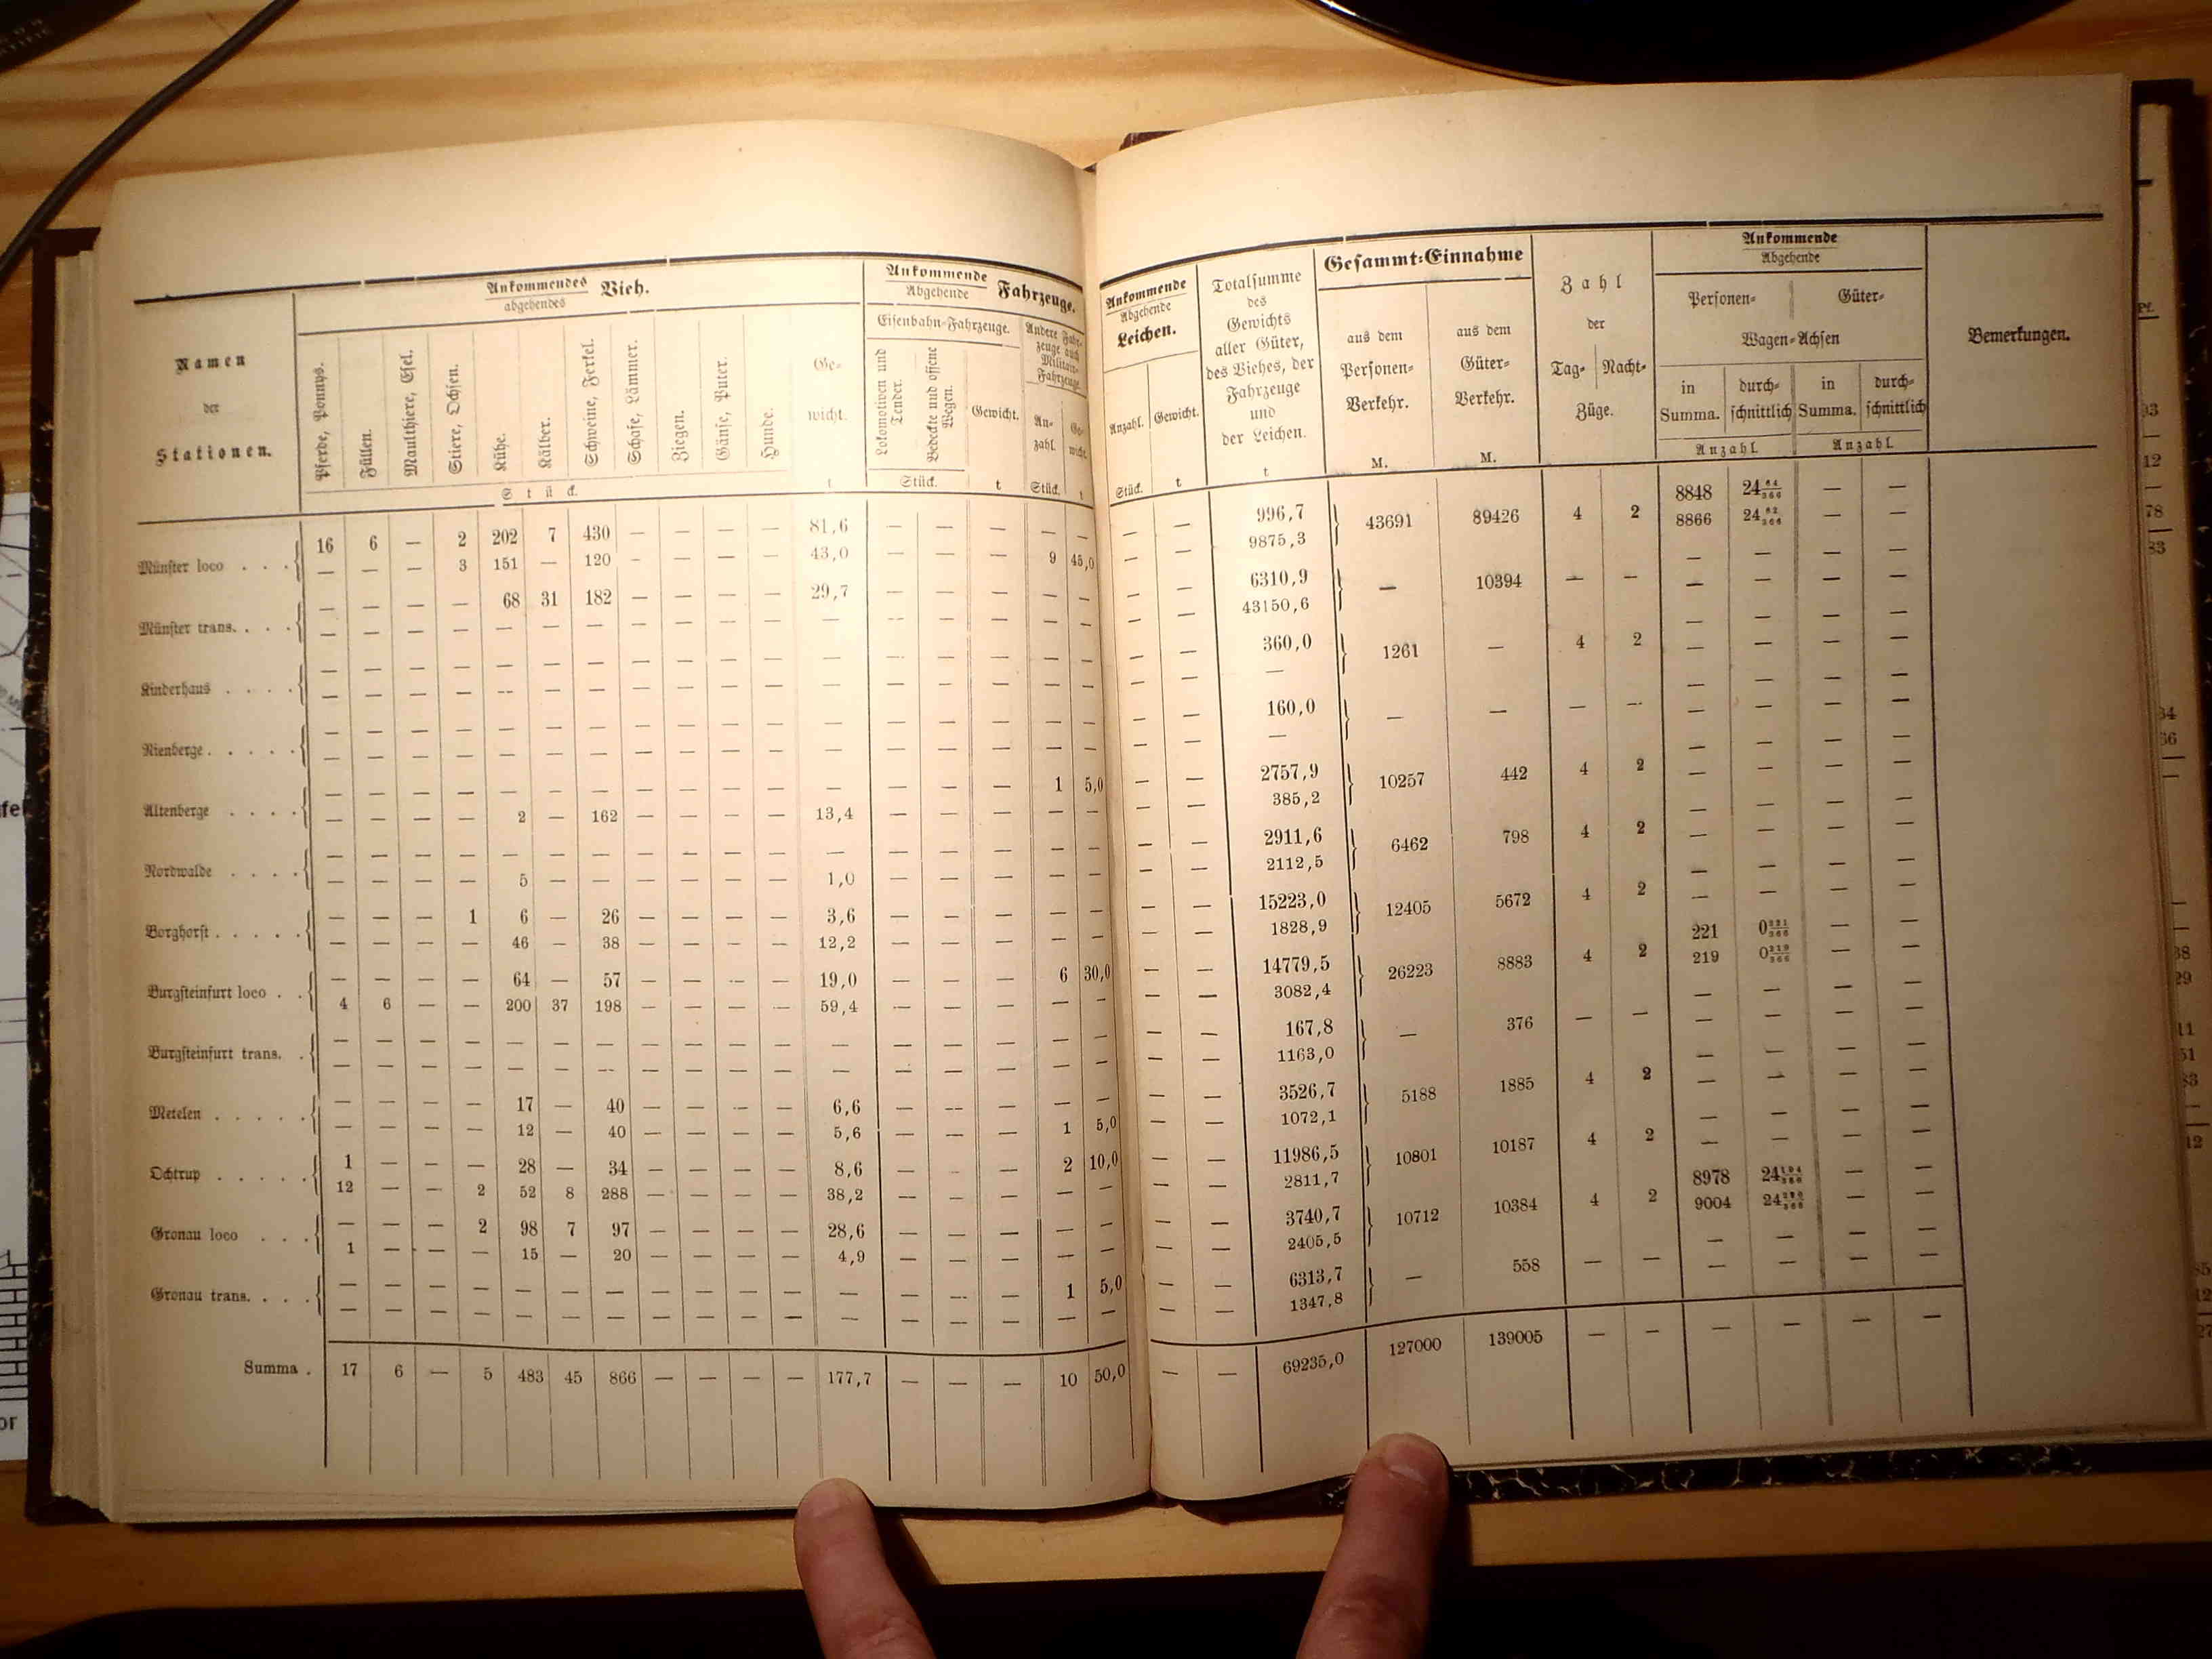 Ankommendes
abgehendes
Vieh.
Ankommende
Abgehende
Fahrzeuge.
Namen
der
Stationen.
Pferde, Ponnys.
Füllen.
Maulthiere, Esel.
Stiere, Ochsen.
Kühe.
Kälber.
Schweine, Ferkel.
Schafe, Lämmer.
Ziegen.
Gänse, Puter.
Hunde.
Ge-
wicht.
Eisenbahn-Fahrzeuge.
Lokomotiven und
Tender.
Bedeckte und offene
Wegen.
Gewicht.
Andere Fahr-
zeuge auch
Militair-
Fahrzeuge
An-
zahl.
Ge-
wicht
Stück.
t
Stück.
t
Stück.
t
Münster loco . . .
16 6 — 2 202 7 430 — — — — 81,6 — — — — —
— — — 3 151 — 120 — — — — 43,0 — — — 9 45,0
Münster trans. . . .
— — — — 68 31 182 — — — — 29,7 — — — — —
— — — — — — — — — — — — — — — — —
Kinderhaus . . . .
— — — — — — — — — — — — — — — — —
— — — — — — — — — — — — — — — — —
Nienberge . . . . .
— — — — — — — — — — — — — — — — —
— — — — — — — — — — — — — — — — —
Altenberge . . . .
— — — — — — — — — — — — — — — 1 5,0
— — — — 2 — 162 — — — — 13,4 — — — — —
Nordwalde . . . .
— — — — — — — — — — — — — — — — —
— — — — 5 — — — — — — 1,0 — — — — —
Borghorst . . . . .
— — — 1 6 — 26 — — — — 3,6 — — — — —
— — — — 46 — 38 — — — — 12,2 — — — — —
Burgsteinfurt loco . .
— — — — 64 — 57 — — — — 19,0 — — — 6 30,0
4 6 — — 200 37 198 — — — — 59,4 — — — — —
Burgsteinfurt trans. .
— — — — — — — — — — — — — — — — —
— — — — — — — — — — — — — — — — —
Metelen . . . . .
— — — — 17 — 40 — — — — 6,6 — — — — —
— — — — 12 — 40 — — — — 5,6 — — — 1 5,0
Ochtrup . . . . .
1 — — — 28 — 34 — — — — 8,6 — — — 2 10,0
12 — — 2 52 8 288 — — — — 38,2 — — — — —
Gronau loco . . .
— — — 2 98 7 97 — — — — 28,6 — — — — —
1 — — — 15 — 20 — — — — 4,9 — — — — —
Gronau trans. . . .
— — — — — — — — — — — — — — — 1 5,0
— — — — — — — — — — — — — — — — —
Summa . 17 6 — 5 483 45 866 — — — — 177,7 — — — 10 50,0
Ankommende
Abgehende
Leichen.
Anzahl.
Gewicht.
Stück.
t
Totalsumme
des
Gewichts
aller Güter,
des Viehes, der
Fahrzeuge
und
der Leichen.
t
Gesammt-Einnahme
aus dem
Personen-
Verkehr.
M.
aus dem
Güter-
Verkehr.
M.
Zahl
der
Tag- Nacht-
Züge.
Ankommende
Abgehende
Personen- Güter-
Wagen-Achsen
in
Summa.
durch-
schnittlich
in
Summa.
durch-
schnittlich
Anzahl Anzahl
Bemerkungen.
— — 996,7 43691 89426 4 2 8848 24 64/366 — —
— — 9875,3 8866 24 82/366 — —
— — 6310,9 — 10394 — — — — — —
— — 43150,6 — — — —
— — 360,0 1261 — 4 2 — — — —
— — — — — — —
— — 160,0 — — — — — — — —
— — — — — — —
— — 2757,9 10257 442 4 2 — — — —
— — 385,2 — — — —
— — 2911,6 6462 798 4 2 — — — —
— — 2112,5 — — — —
— — 15223,0 12405 5672 4 2 — — — —
— — 1828,9 — — — —
— — 14779,5 26223 8883 4 2 221 0 221/366 — —
— — 3082,4 219 0 219/366 — —
— — 167,8 — 376 — — — — — —
— — 1163,0 — — — —
— — 3526,7 5188 1885 4 2 — — — —
— — 1072,1 — — — —
— — 11986,5 10801 10187 4 2 — — — —
— — 2811,7 — — — —
— — 3740,7 10712 10384 4 2 8978 24 194/366 — —
— — 2405,5 9004 24 220/366 — —
— — 6313,7 — 558 — — — — — —
— — 1347,8 — — — —
— — 69235,0 127000 139005 — — — — — —